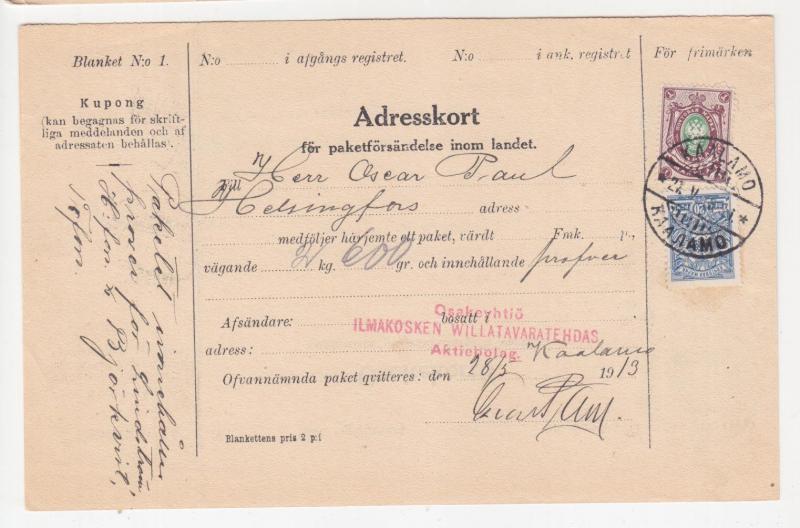 Blanket N:o 1.
N:o i afgångs registret. N:o i ank. registret
För frimärken
Kupong
(kan begagnas för skrift-
liga meddelanden och af
adressaten behållas).
Adresskort
för paketförsändelse inom landet.
Till Herr Oscar Paul
Helsingfors adress
medföljer härjemte ett paket, värdt Fmk. p.,
vägande kg. 600 gr. och innehållande profver
Osakeyhtiö
Afsändare: bosatt i
ILMAKOSKEN WILLATAVARATEHDAS
adress: Aktiebolag. Kaalamo
Ofvannämnda paket qvitteres: den 28/5 1913
Blankettens pris 2 p:i
Paketet innehåller
prover för Lindström
H:fors &
KAALAMO
КААЛАМО